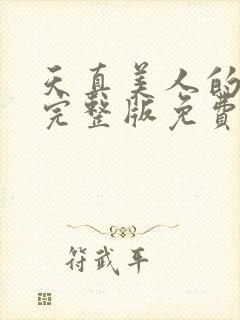 天真美人的
完整版免费
符武平